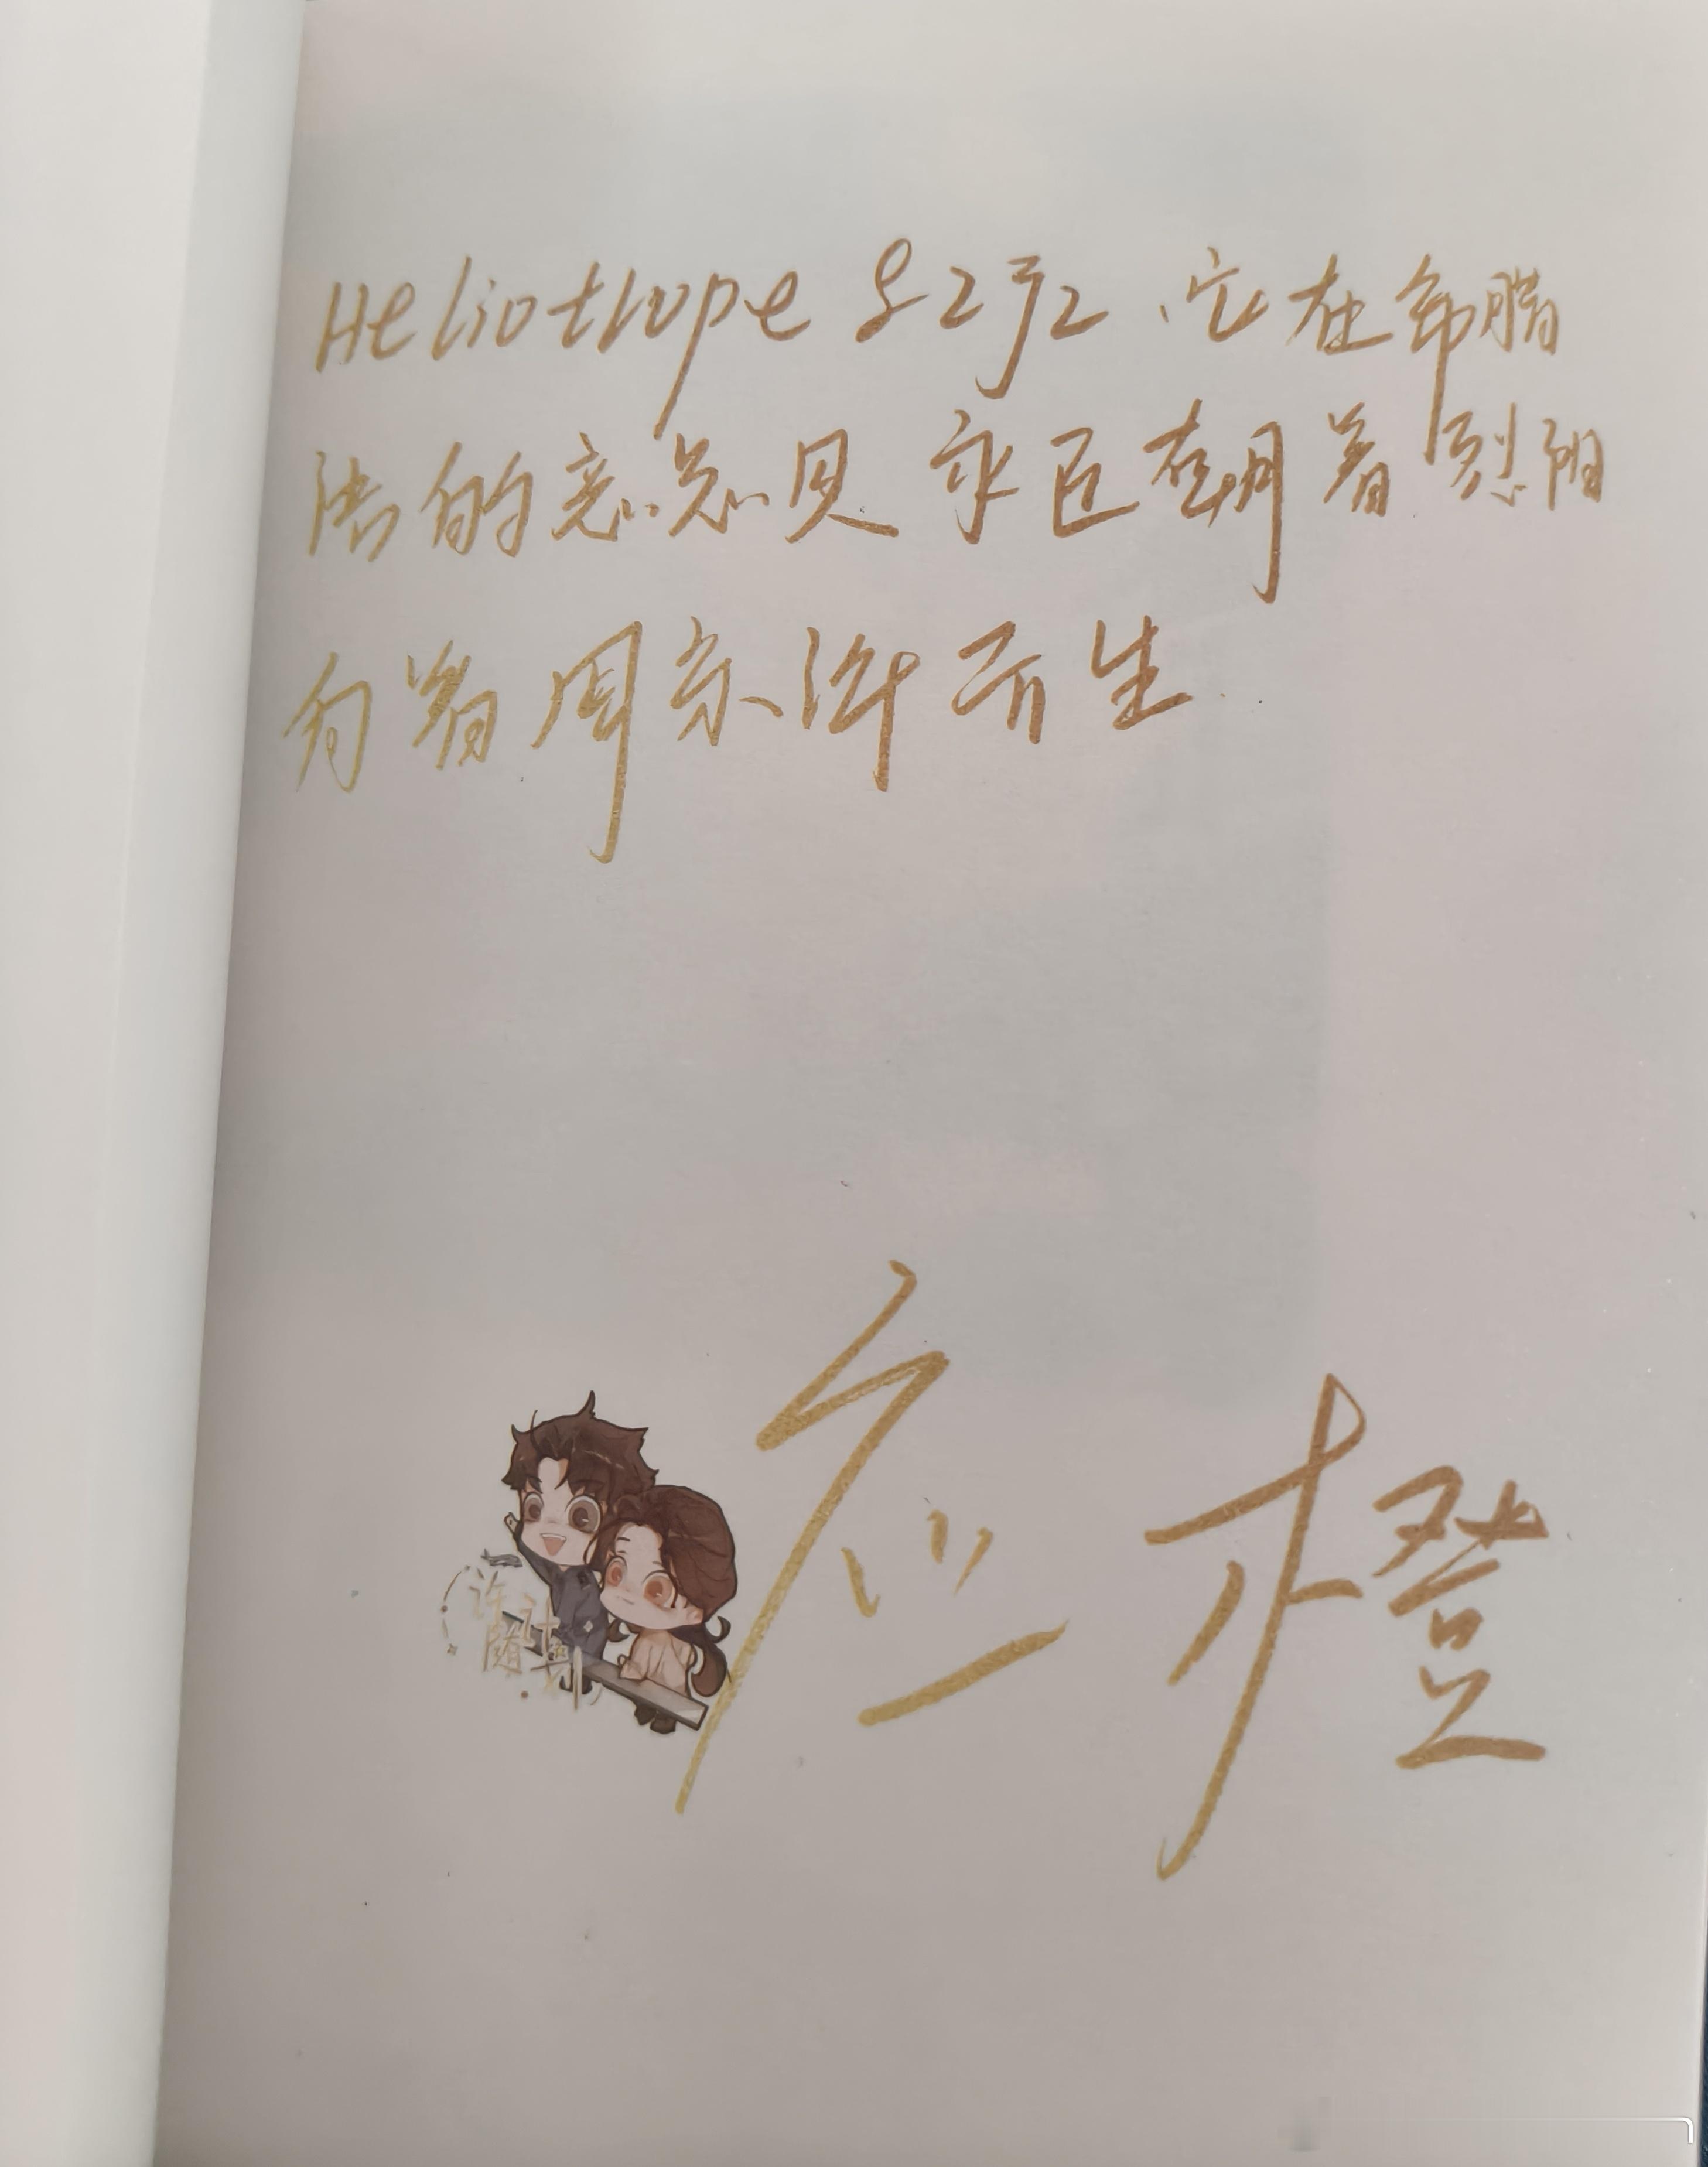 Heliotrope 8272、它在希腊
语的意思是 永远在朝着烈阳
向着周京许而生.
许
随
计
划
应橙